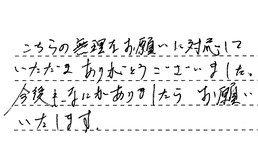 こちらの無理なお願いに対応して
いただき ありがとうございました。
今後も なにかありましたら お願い
いたします。